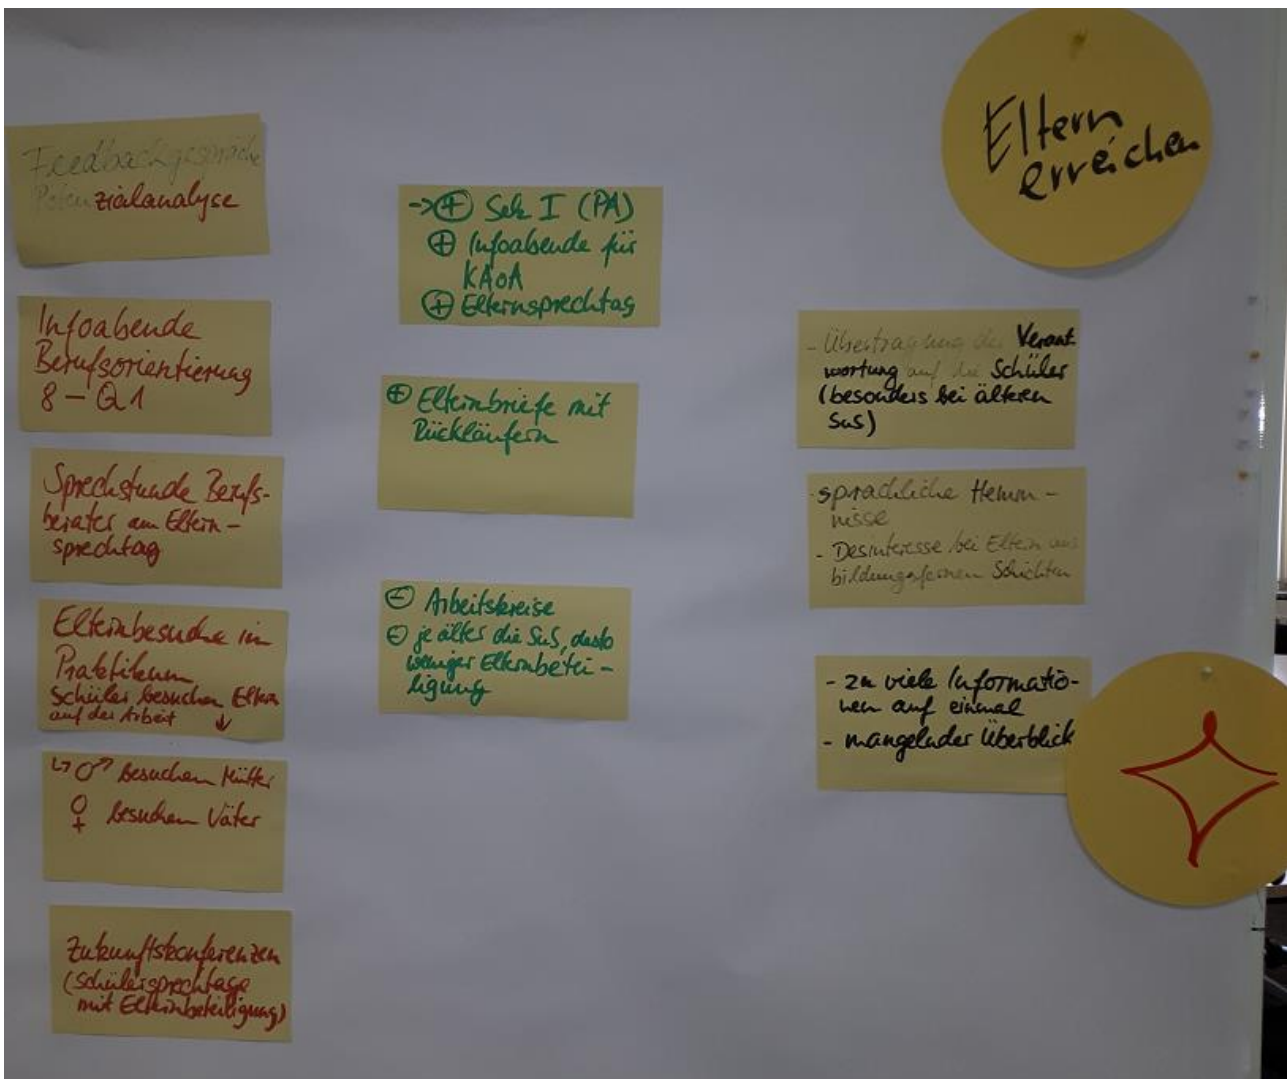 Eltern
erreichen
Feedbackgespräche
Potenzialanalyse
Infoabende
Berufsorientierung
8 – Q1
Sprechstunde Berufs-
berater am Eltern-
sprechtag
Elternbesuche im
Praktikum
Schüler besuchen Eltern
auf der Arbeit ↓
↳ ♂ besuchen Mütter
♀ besuchen Väter
Zukunftskonferenzen
(Schülersprechtage
mit Elternbeteiligung)
-> ⊕ Sek I (PA)
⊕ Infoabende für
KAoA
⊕ Elternsprechtag
⊕ Elternbriefe mit
Rückläufern
⊖ Arbeitskreise
⊖ je älter die SuS, desto
weniger Elternbetei-
ligung
- Übertragung der Verant
wortung auf die Schüler
(besonders bei älteren
SuS)
- sprachliche Hemm-
nisse
- Desinteresse bei Eltern aus
bildungsfernen Schichten
- zu viele Informatio-
nen auf einmal
- mangelnder Überblick